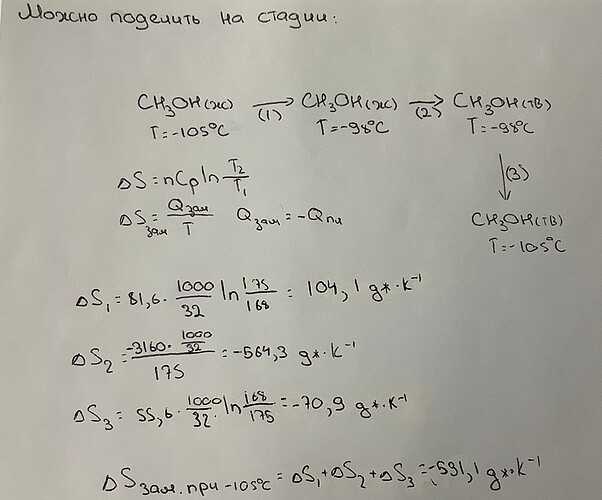 Можно поделить на стадии:
CH₃OH(ж) →(1) CH₃OH(ж) →(2) CH₃OH(тв)
T=-105°C T=-98°C T=-98°C
ΔS = nCp ln T₂/T₁
↓(3)
ΔSзам = Qзам/T Qзам = -Qпл
CH₃OH(тв)
T=-105°C
ΔS₁ = 81,6 · 1000/32 ln 175/168 = 104,1 Дж·К⁻¹
ΔS₂ = -3160 · 1000/32 / 175 = -564,3 Дж·К⁻¹
ΔS₃ = 55,6 · 1000/32 ln 168/175 = -70,9 Дж·К⁻¹
ΔSзам. при -105°C = ΔS₁ + ΔS₂ + ΔS₃ = -531,1 Дж·К⁻¹